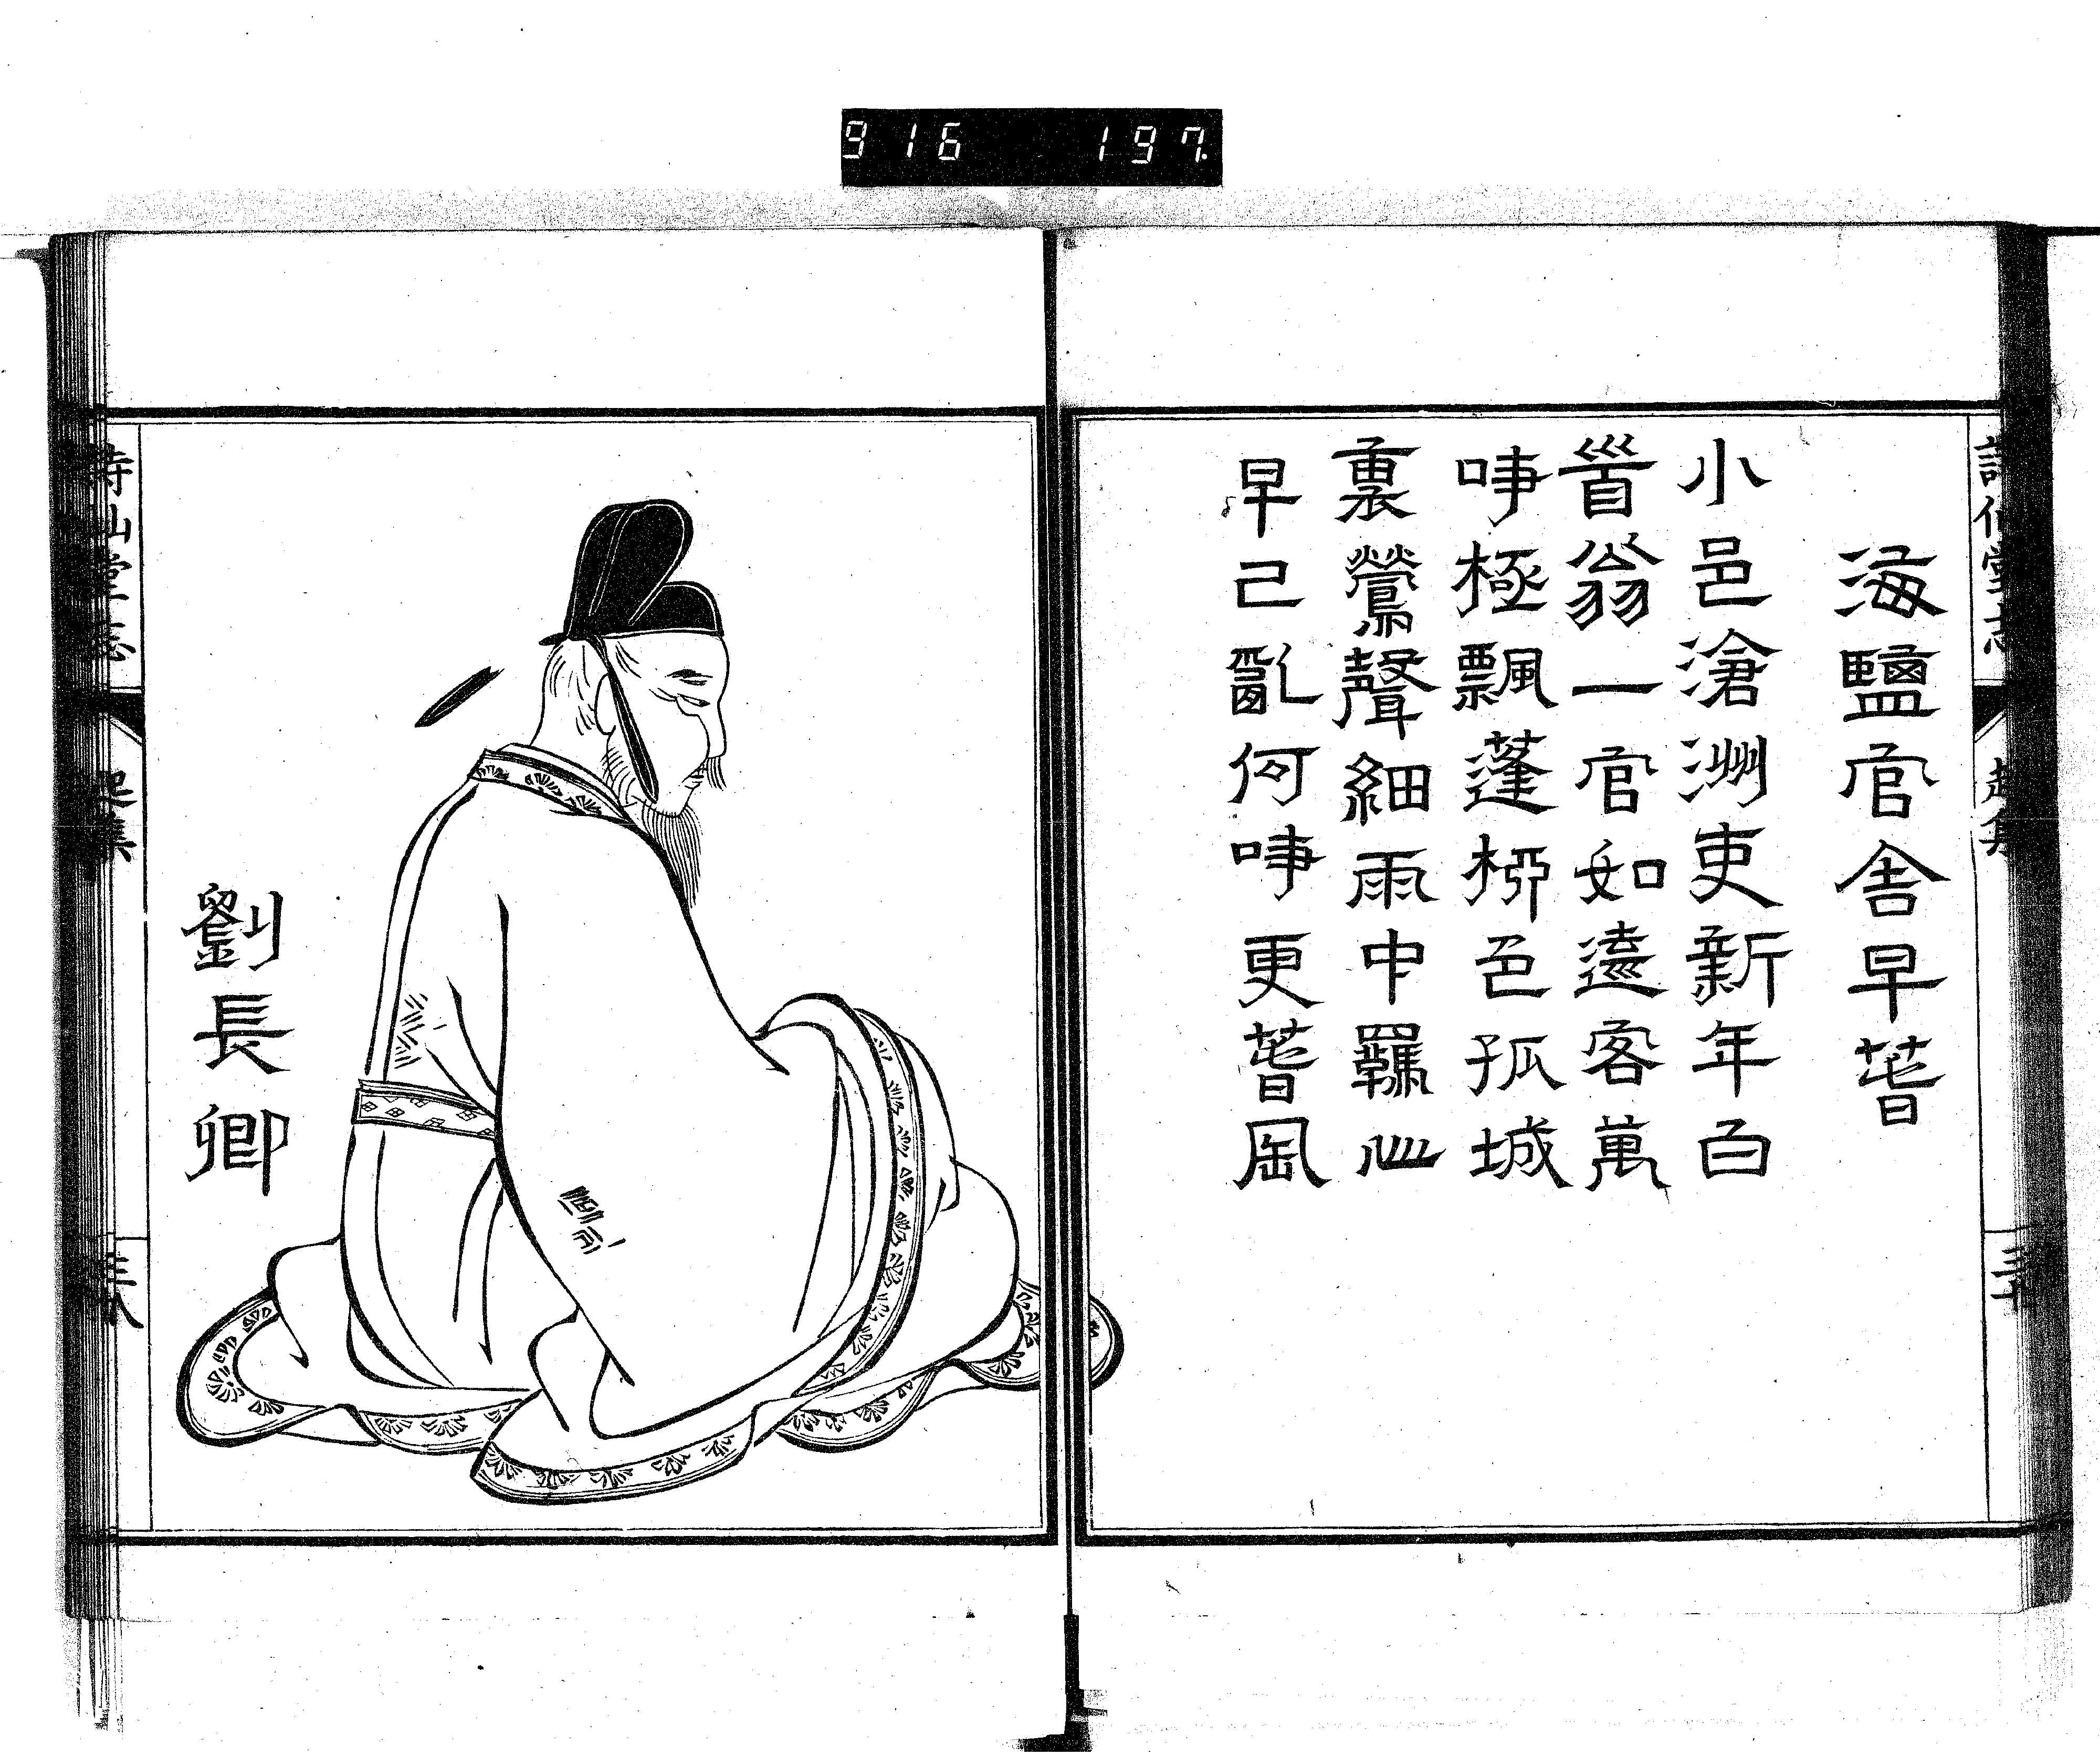 916 197.
詩仙堂志 起集
海鹽官舍早萅
小邑滄洲吏新年白
𩠐翁一官如遠客萬
事極飄蓬柳色孤城
裏鶯聲細雨中羈心
早已亂何事更萅風
劉長卿
詩仙堂志 起集